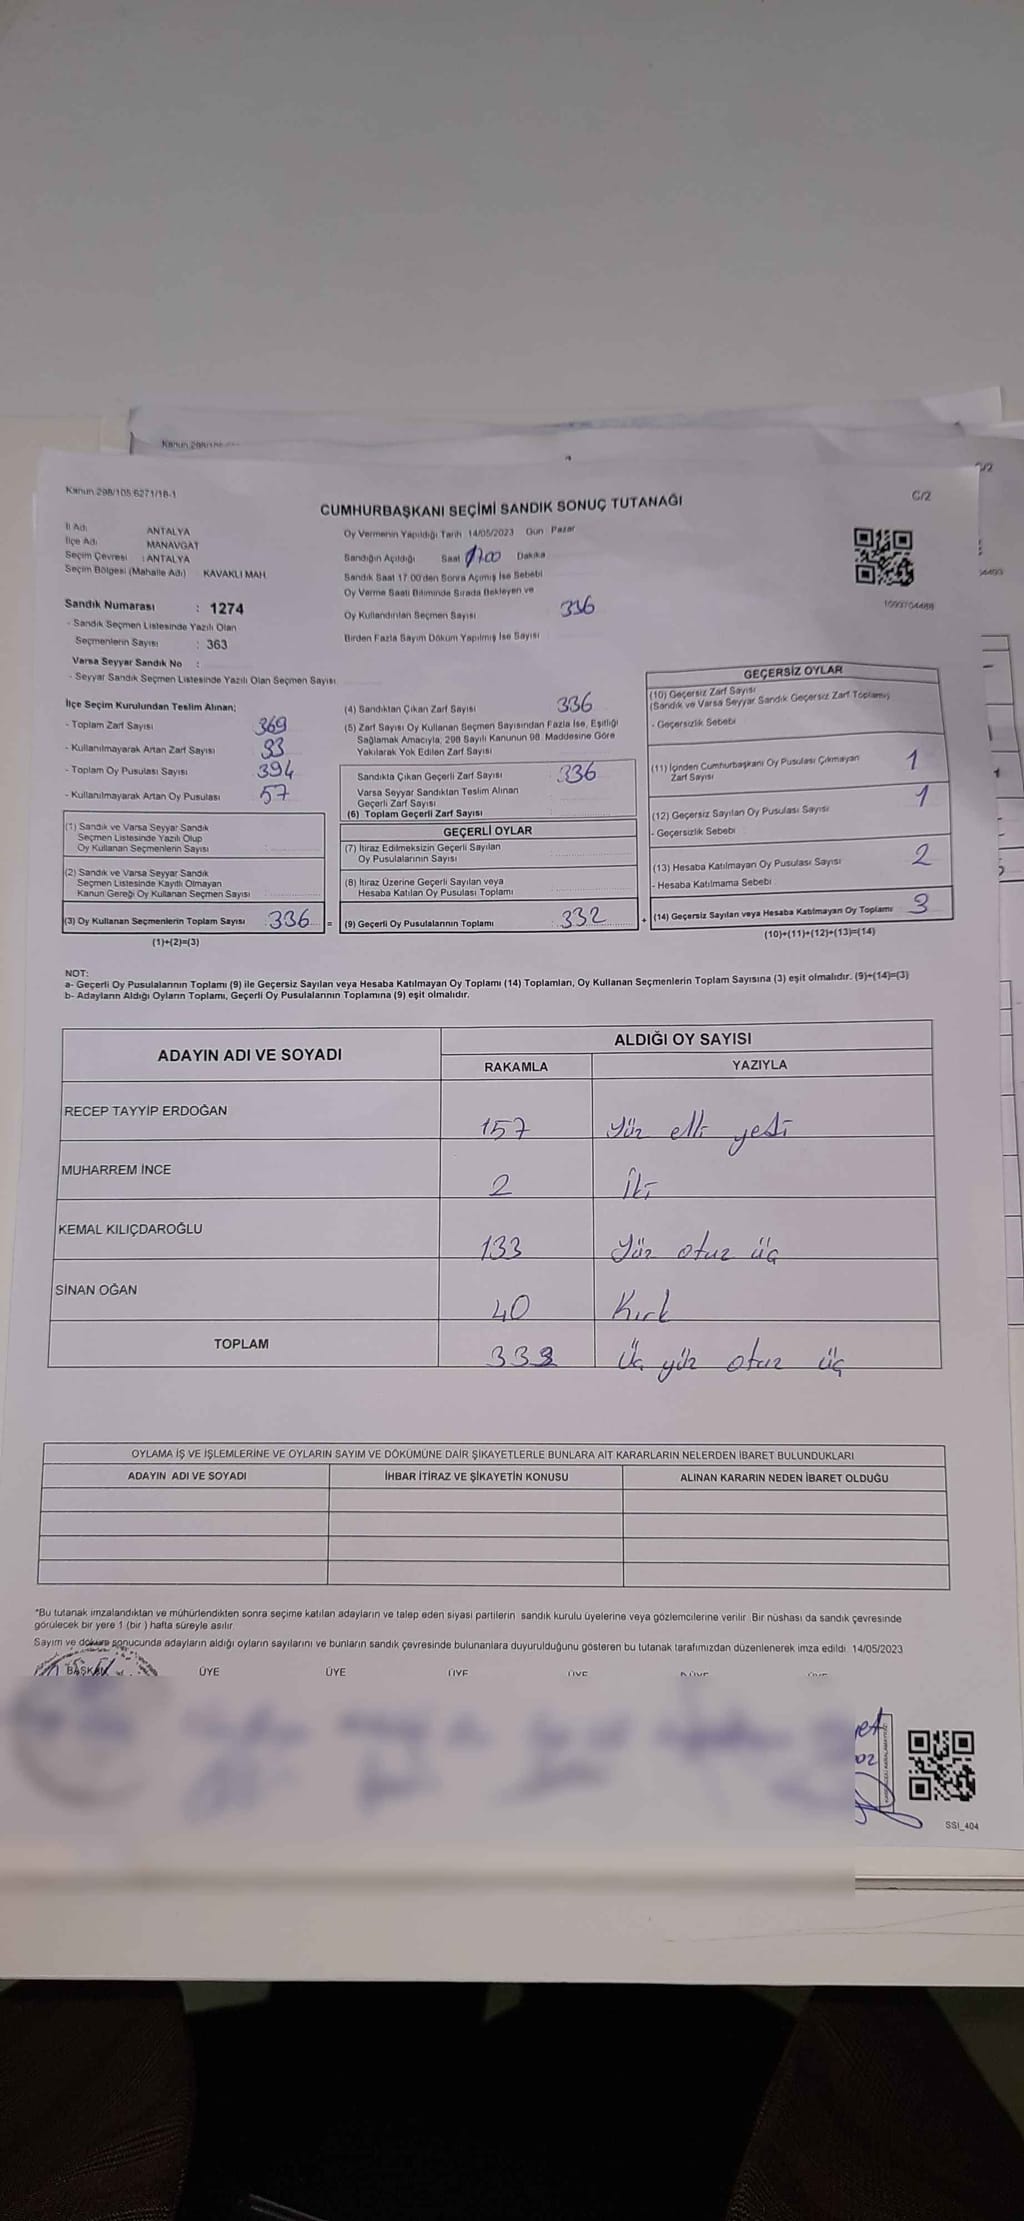 Kanun 298/105 6271/18-1
C/2
CUMHURBAŞKANI SEÇİMİ SANDIK SONUÇ TUTANAĞI
İl Adı ANTALYA
İlçe Adı MANAVGAT
Seçim Çevresi : ANTALYA
Seçim Bölgesi (Mahalle Adı) KAVAKLI MAH.
Sandık Numarası : 1274
- Sandık Seçmen Listesinde Yazılı Olan
Seçmenlerin Sayısı : 363
Varsa Seyyar Sandık No :
- Seyyar Sandık Seçmen Listesinde Yazılı Olan Seçmen Sayısı
Oy Vermenin Yapıldığı Tarih 14/05/2023 Gün Pazar
Sandığın Açıldığı Saat 1700 Dakika
Sandık Saat 17.00'den Sonra Açımış İse Sebebi
Oy Verme Saati Bitiminde Sırada Bekleyen ve
Oy Kullandırılan Seçmen Sayısı 336
Birden Fazla Sayım Döküm Yapılmış İse Sayısı
İlçe Seçim Kurulundan Teslim Alınan;
- Toplam Zarf Sayısı 369
- Kullanılmayarak Artan Zarf Sayısı 33
- Toplam Oy Pusulası Sayısı 394
- Kullanılmayarak Artan Oy Pusulası 57
(1) Sandık ve Varsa Seyyar Sandık
Seçmen Listesinde Yazılı Olup
Oy Kullanan Seçmenlerin Sayısı
(2) Sandık ve Varsa Seyyar Sandık
Seçmen Listesinde Kayıtlı Olmayan
Kanun Gereği Oy Kullanan Seçmen Sayısı
(3) Oy Kullanan Seçmenlerin Toplam Sayısı 336 =
(1)+(2)=(3)
(4) Sandıktan Çıkan Zarf Sayısı 336
(5) Zarf Sayısı Oy Kullanan Seçmen Sayısından Fazla İse, Eşitliği
Sağlamak Amacıyla, 298 Sayılı Kanunun 98. Maddesine Göre
Yakılarak Yok Edilen Zarf Sayısı
Sandıkta Çıkan Geçerli Zarf Sayısı 336
Varsa Seyyar Sandıktan Teslim Alınan
Geçerli Zarf Sayısı
(6) Toplam Geçerli Zarf Sayısı
GEÇERLİ OYLAR
(7) İtiraz Edilmeksizin Geçerli Sayılan
Oy Pusulalarının Sayısı
(8) İtiraz Üzerine Geçerli Sayılan veya
Hesaba Katılan Oy Pusulası Toplamı
(9) Geçerli Oy Pusulalarının Toplamı 332 +
GEÇERSİZ OYLAR
(10) Geçersiz Zarf Sayısı
(Sandık ve Varsa Seyyar Sandık Geçersiz Zarf Toplamı)
- Geçersizlik Sebebi
(11) İçinden Cumhurbaşkanı Oy Pusulası Çıkmayan
Zarf Sayısı 1
(12) Geçersiz Sayılan Oy Pusulası Sayısı 1
- Geçersizlik Sebebi
(13) Hesaba Katılmayan Oy Pusulası Sayısı 2
- Hesaba Katılmama Sebebi
(14) Geçersiz Sayılan veya Hesaba Katılmayan Oy Toplamı 3
(10)+(11)+(12)+(13)=(14)
NOT:
a- Geçerli Oy Pusulalarının Toplamı (9) ile Geçersiz Sayılan veya Hesaba Katılmayan Oy Toplamı (14) Toplamları, Oy Kullanan Seçmenlerin Toplam Sayısına (3) eşit olmalıdır. (9)+(14)=(3)
b- Adayların Aldığı Oyların Toplamı, Geçerli Oy Pusulalarının Toplamına (9) eşit olmalıdır.
ADAYIN ADI VE SOYADI ALDIĞI OY SAYISI
RAKAMLA YAZIYLA
RECEP TAYYİP ERDOĞAN 157 Yüz elli yedi
MUHARREM İNCE 2 İki
KEMAL KILIÇDAROĞLU 133 Yüz otuz üç
SİNAN OĞAN 40 Kırk
TOPLAM 333 Üç yüz otuz üç
OYLAMA İŞ VE İŞLEMLERİNE VE OYLARIN SAYIM VE DÖKÜMÜNE DAİR ŞİKAYETLERLE BUNLARA AİT KARARLARIN NELERDEN İBARET BULUNDUKLARI
ADAYIN ADI VE SOYADI İHBAR İTİRAZ VE ŞİKAYETİN KONUSU ALINAN KARARIN NEDEN İBARET OLDUĞU
*Bu tutanak imzalandıktan ve mühürlendikten sonra seçime katılan adayların ve talep eden siyasi partilerin sandık kurulu üyelerine veya gözlemcilerine verilir. Bir nüshası da sandık çevresinde
görülecek bir yere 1 (bir ) hafta süreyle asılır.
Sayım ve döküm sonucunda adayların aldığı oyların sayılarını ve bunların sandık çevresinde bulunanlara duyurulduğunu gösteren bu tutanak tarafımızdan düzenlenerek imza edildi. 14/05/2023
BAŞKAN ÜYE ÜYE ÜYE ÜYE
SSI_404